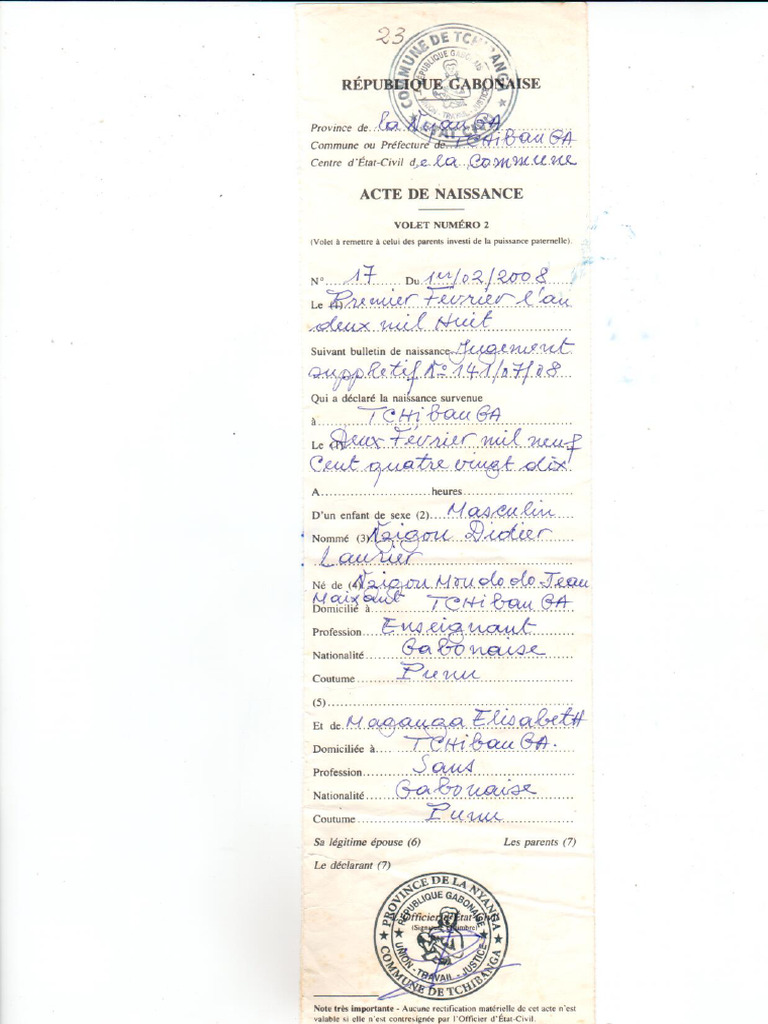 23
COMMUNE DE TCHIBANGA
RÉPUBLIQUE GABONAISE
UNION - TRAVAIL - JUSTICE
ÉTAT CIVIL
RÉPUBLIQUE GABONAISE
Province de la Nyanga
Commune ou Préfecture de TCHIbanGA
Centre d'État-Civil de la Commune
ACTE DE NAISSANCE
VOLET NUMÉRO 2
(Volet à remettre à celui des parents investi de la puissance paternelle).
N° 17 Du 1er/02/2008
Le (1) Premier Février l'an
deux mil Huit
Suivant bulletin de naissance Jugement
suppletif No 141/07/08
Qui a déclaré la naissance survenue
à TCHibanGA
Le (1) Deux Février mil neuf
Cent quatre vingt dix
A heures
D'un enfant de sexe (2) Masculin
Nommé (3) Nzigou Didier
Laurier
Né de (4) Nzigou Moudodo Jean
Maixant
Domicilié à TCHIbanGA
Profession Enseignant
Nationalité Gabonaise
Coutume Punu
(5)
Et de Maganga ElisabetH
Domiciliée à TCHIbanGA.
Profession Sans
Nationalité Gabonaise
Coutume Punu
Sa légitime épouse (6) Les parents (7)
Le déclarant (7)
PROVINCE DE LA NYANGA
RÉPUBLIQUE GABONAISE
L'Officier d'État-Civil
UNION - TRAVAIL - JUSTICE
COMMUNE DE TCHIBANGA
Note très importante - Aucune rectification matérielle de cet acte n'est
valable si elle n'est contresignée par l'Officier d'État-Civil.